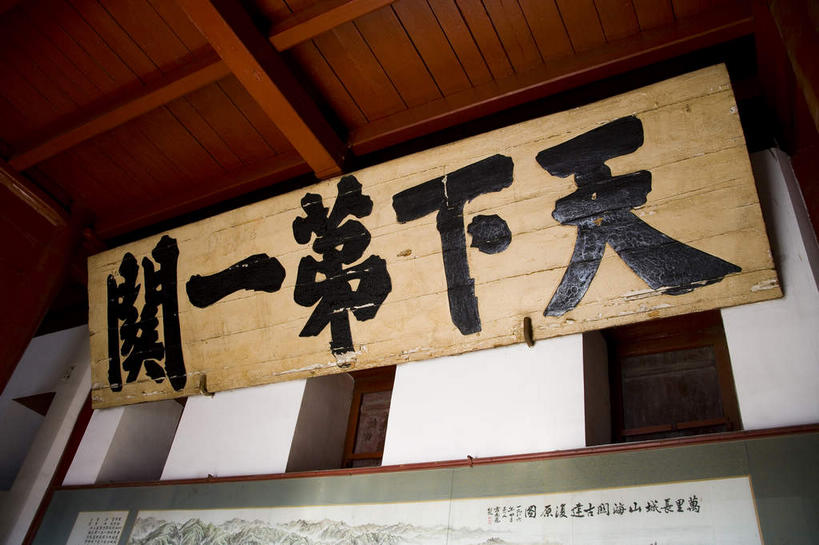 天下第一關
萬里長城山海關古建復原圖